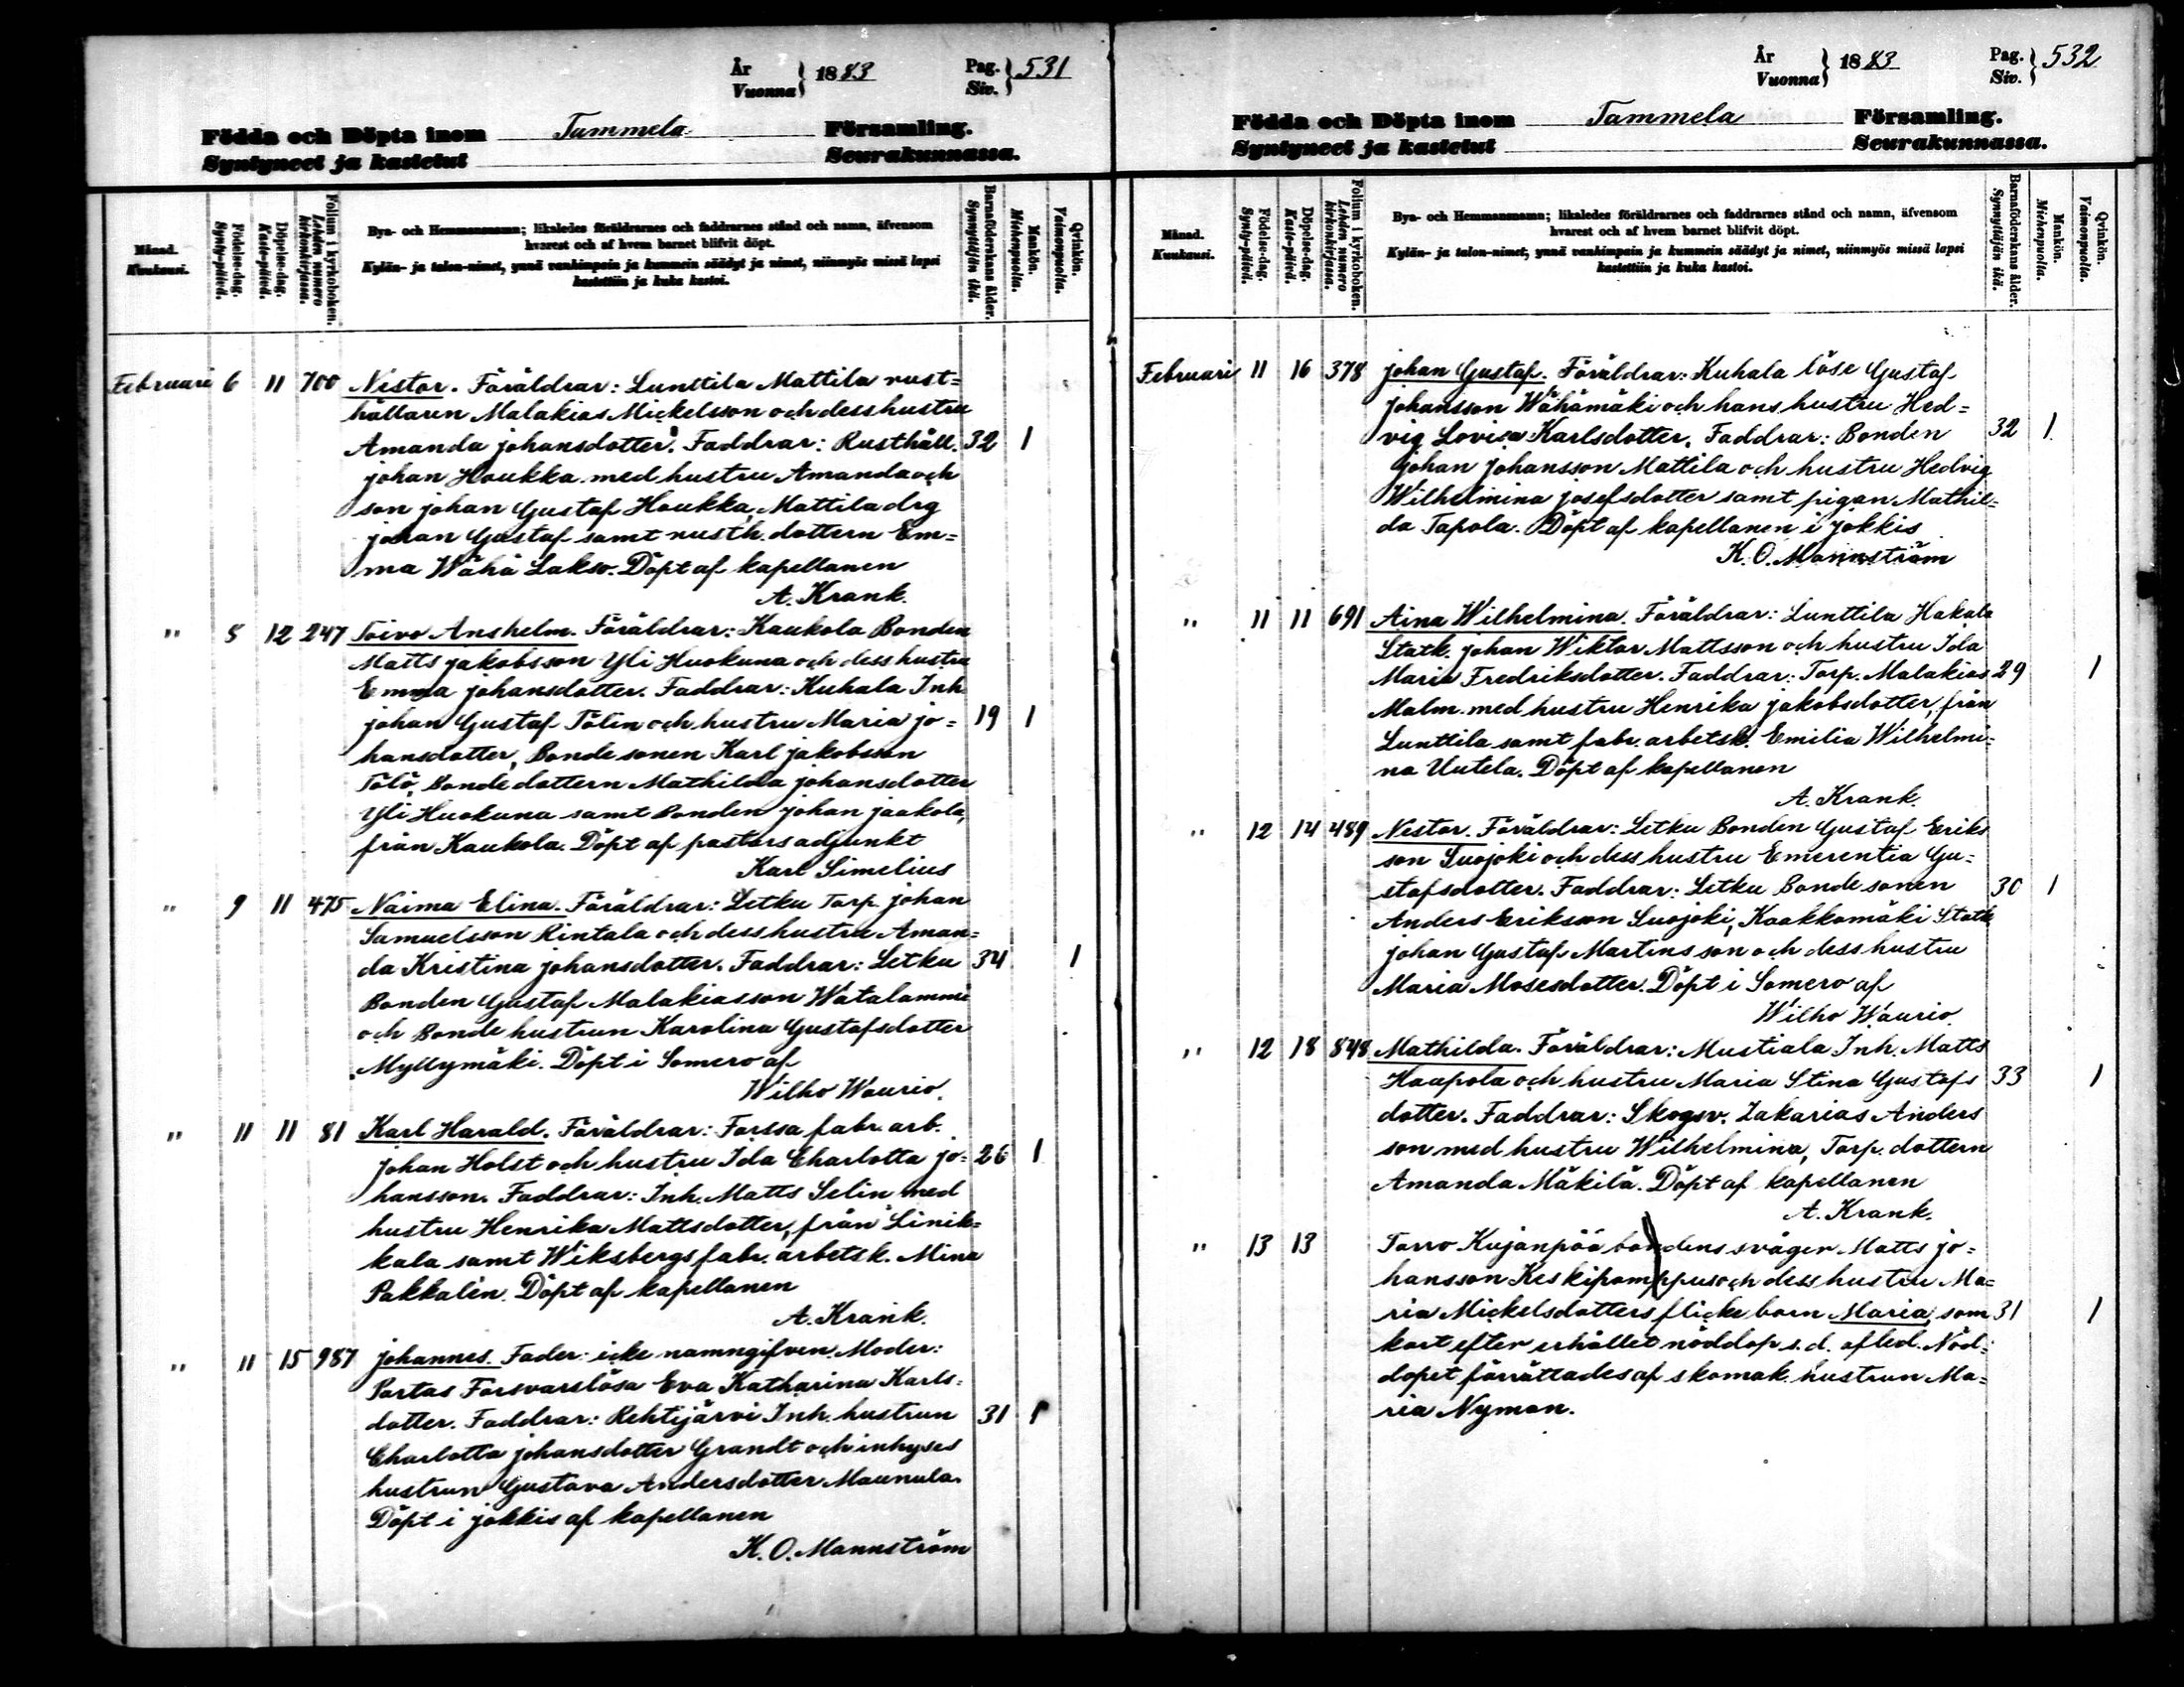 År
Vuonna } 1883 Pag.
Siv. } 531
Födda och Döpta inom Tammela Församling.
Syntyneet ja kastetut Seurakunnassa.
Månad.
Kuukausi.
Födelse-dag.
Synty-päivä.
Döpelse-dag.
Kaste-päivä.
Folium i kyrkoboken.
Lehden numero
kirkonkirjassa.
Bya- och Hemmansnamn; likaledes föräldrarnes och faddrarnes stånd och namn, äfvensom
hvarest och af hvem barnet blifvit döpt.
Kylän- ja talon-nimet, ynnä vanhimpain ja kummein säädyt ja nimet, niinmyös missä lapsi
kastettiin ja kuka kastoi.
Barnaföderskans ålder.
Synnyttäjän ikä.
Mankön.
Miehenpuolta.
Qvinkön.
Vaimonpuolta.
Februari 6 11 700 Nestor. Föräldrar: Lunttila Mattila rust=
hållaren Malakias Mickelsson och dess hustru
Amanda Johansdotter. Faddrar: Rusthåll. 32 1
Johan Houkka med hustru Amanda och
son Johan Gustaf Houkka, Mattila drg
Johan Gustaf samt rusth. dottern Em=
ma Wähä Lakso. Döpt af kapellanen
A. Krank.
" 8 12 247 Toivo Anshelm. Föräldrar: Kaukola Bonden
Matts Jakobsson Yli Huokuna och dess hustru
Emma Johansdotter. Faddrar: Kuhala Inh.
Johan Gustaf Tölin och hustru Maria Jo= 19 1
hansdotter, Bonde sonen Karl Jakobsson
Tölö, Bonde dottern Mathilda Johansdotter
Yli Huokuna samt Bonden Johan Jaakola,
från Kaukola. Döpt af pastors adjunkt
Karl Simelius
" 9 11 475 Naima Elina. Föräldrar: Letku Torp. Johan
Samuelsson Rintala och dess hustru Aman=
da Kristina Johansdotter. Faddrar: Letku 34 1
Bonden Gustaf Malakiasson Watalammi
och Bonde hustrun Karolina Gustafsdotter
Myllymäki. Döpt i Somero af
Wilho Waurio.
" 11 11 81 Karl Harald. Föräldrar: Forssa fabr. arb.
Johan Holst och hustru Ida Charlotta Jo= 26 1
hansson. Faddrar: Inh. Matts Selin med
hustru Henrika Mattsdotter, från Linik=
kala samt Wiksbergs fabr. arbetsk. Mina
Pakkalén. Döpt af kapellanen
A. Krank.
" 11 15 987 Johannes. Fader: icke namngifven. Moder:
Portas Försvarslösa Eva Katharina Karls=
dotter. Faddrar: Rehtijärvi Inh. hustrun 31 1
Charlotta Johansdotter Grandt och inhyses
hustrun Gustava Andersdotter Maunula.
Döpt i Jokkis af kapellanen
K. O. Mannström
År
Vuonna } 1883 Pag.
Siv. } 532
Födda och Döpta inom Tammela Församling.
Syntyneet ja kastetut Seurakunnassa.
Månad.
Kuukausi.
Födelse-dag.
Synty-päivä.
Döpelse-dag.
Kaste-päivä.
Folium i kyrkoboken.
Lehden numero
kirkonkirjassa.
Bya- och Hemmansnamn; likaledes föräldrarnes och faddrarnes stånd och namn, äfvensom
hvarest och af hvem barnet blifvit döpt.
Kylän- ja talon-nimet, ynnä vanhimpain ja kummein säädyt ja nimet, niinmyös missä lapsi
kastettiin ja kuka kastoi.
Barnaföderskans ålder.
Synnyttäjän ikä.
Mankön.
Miehenpuolta.
Qvinkön.
Vaimonpuolta.
Februari 11 16 378 Johan Gustaf. Föräldrar: Kuhala löse Gustaf
Johansson Wähämäki och hans hustru Hed=
vig Lovisa Karlsdotter. Faddrar: Bonden 32 1
Johan Johansson Mattila och hustru Hedvig
Wilhelmina Josefsdotter samt pigan Mathil=
da Tapola. Döpt af kapellanen i Jokkis
K. O. Mannström
" 11 11 691 Aina Wilhelmina. Föräldrar: Lunttila Hakala
Statk. Johan Wiktor Mattsson och hustru Ida
Maria Fredriksdotter. Faddrar: Torp. Malakias 29 1
Malm med hustru Henrika Jakobsdotter, från
Lunttila samt fabr. arbetsk. Emilia Wilhelmi=
na Uutela. Döpt af kapellanen
A. Krank.
" 12 14 489 Nestor. Föräldrar: Letku Bonden Gustaf Eriks
son Suojoki och dess hustru Emerentia Gu=
stafsdotter. Faddrar: Letku Bonde sonen 30 1
Anders Eriksson Suojoki, Kaakkomäki Statk
Johan Gustaf Martinsson och dess hustru
Maria Mosesdotter. Döpt i Somero af
Wilho Waurio.
" 12 18 848 Mathilda. Föräldrar: Mustiala Inh. Matts
Haapola och hustru Maria Stina Gustafs 33 1
dotter. Faddrar: Skogsv. Zakarias Anders
son med hustru Wilhelmina, Torp. dottern
Amanda Mäkilä. Döpt af kapellanen
A. Krank.
" 13 13 Torro Kujanpää bondens svåger Matts Jo=
hansson Keskipomppus och dess hustru Ma=
ria Mickelsdotters flicke barn Maria, som 31 1
kort efter erhållet nöddop s.d. afled. Nöd=
dopet förrättades af skomak. hustrun Ma=
ria Nyman.